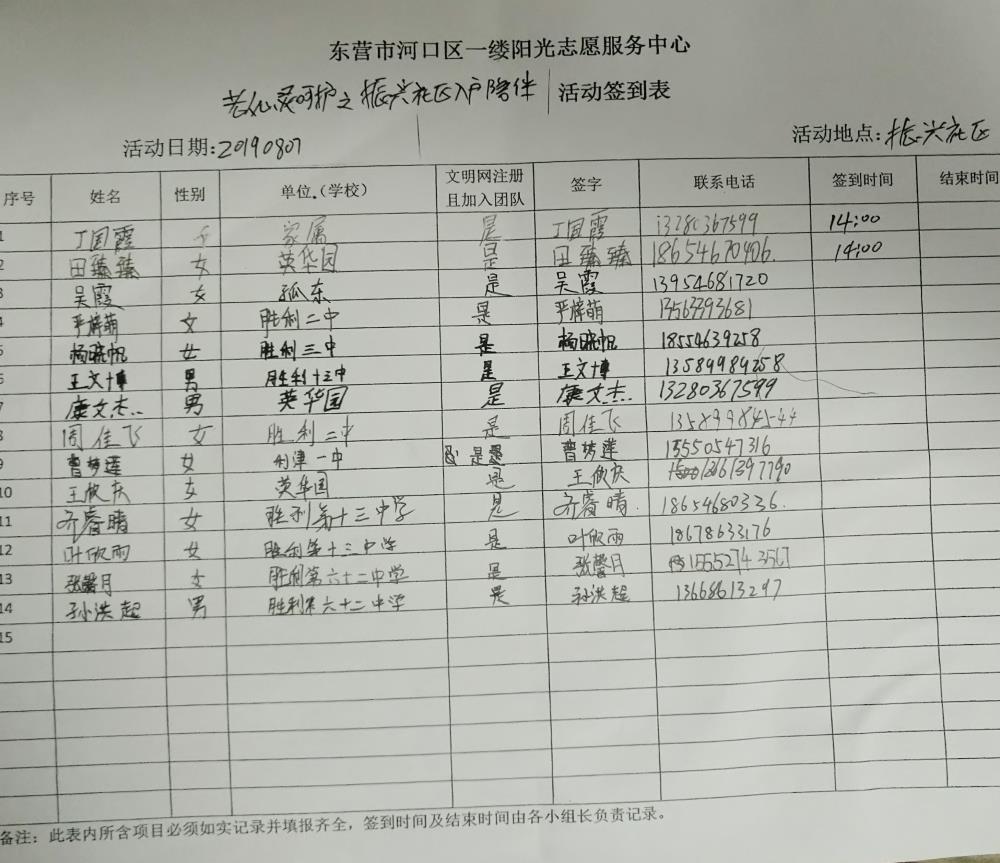 东营市河口区一缕阳光志愿服务中心
老心灵呵护之振兴社区入户陪伴 活动签到表
活动日期:20190807 活动地点:振兴社区
序号 姓名 性别 单位.(学校) 文明网注册且加入团队 签字 联系电话 签到时间 结束时间
1 丁国霞 女 家属 是 丁国霞 13280367599 14:00
2 田臻臻 女 英华园 是 田臻臻 18654670906. 14:00
3 吴霞 女 孤东 是 吴霞 13954681720
4 严梓萌 女 胜利二中 是 严梓萌 13563393681
5 杨晓帆 女 胜利三中 是 杨晓帆 18554639258
6 王文博 男 胜利十三中 是 王文博 13589989258
7 康文杰.. 男 英华园 是 康文杰.. 13280367599
8 周佳飞 女 胜利二中 是 周佳飞 13589984544
9 曹梦莲 女 利津一中 是 曹梦莲 15550547316
10 王欣庆 女 英华园 是 王欣庆 13661397790
11 齐睿晴 女 胜利第十三中学 是 齐睿晴. 18654680336.
12 叶欣雨 女 胜利第十三中学 是 叶欣雨 18678633176
13 张馨月 女 胜利第六十二中学 是 张馨月 15552743567
14 孙洪超 男 胜利第六十二中学 是 孙洪超 13668613297
15
备注：此表内所含项目必须如实记录并填报齐全，签到时间及结束时间由各小组长负责记录。